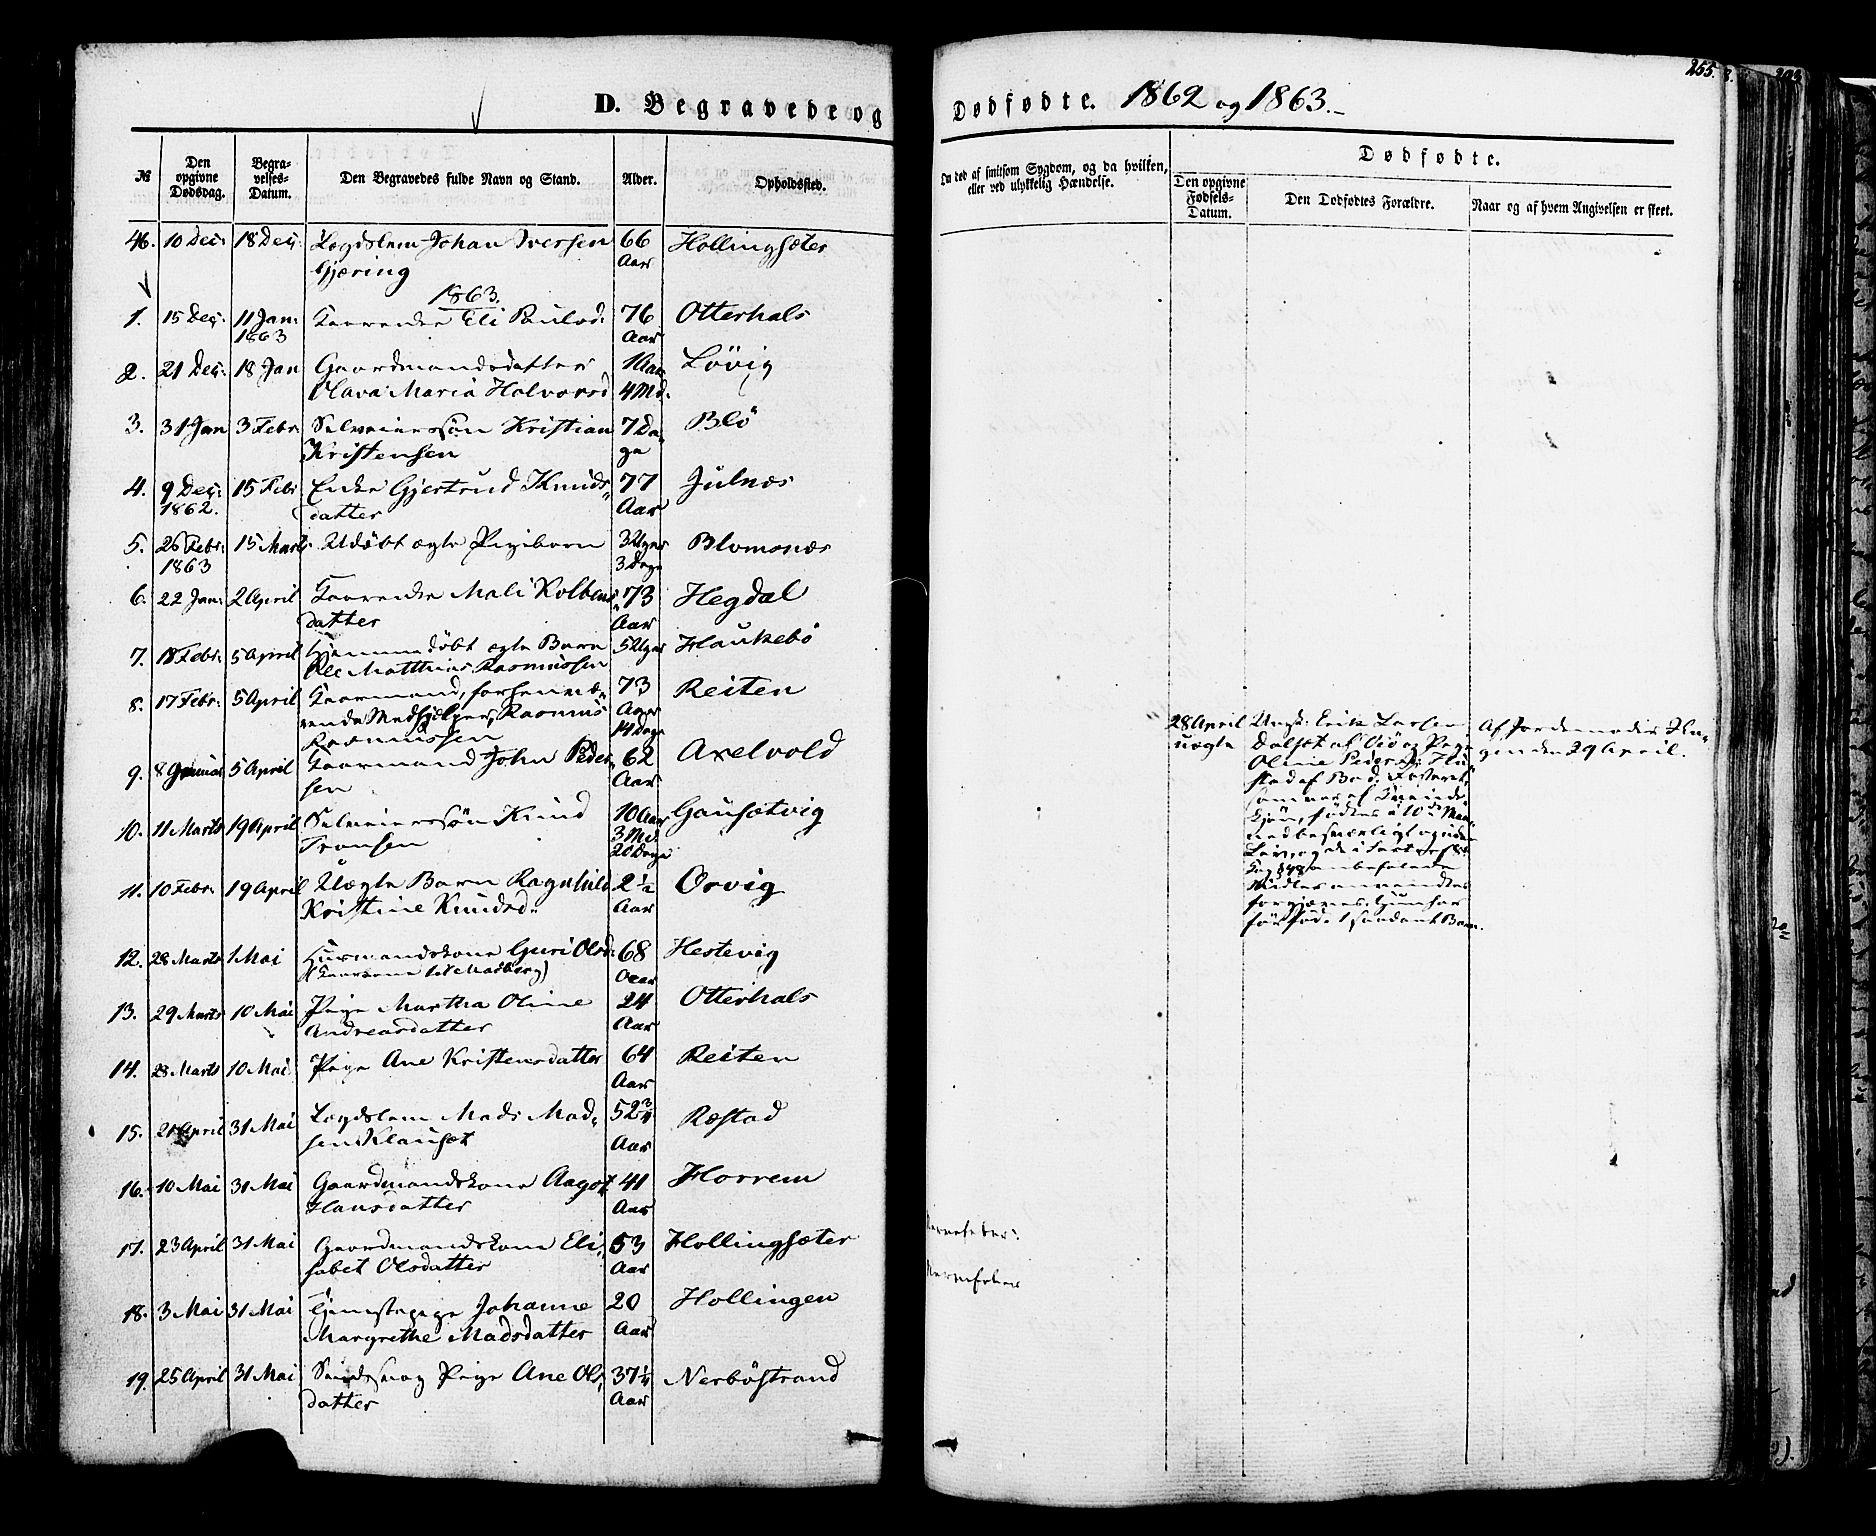 D. Begravede og
№
Den opgivne Dødsdag.
Begravelses-Datum.
Den Begravedes fulde Navn og Stand.
Alder.
Opholdssted.
46. 10 Deç: 18 Deç: Lægdslem Johan Iversen 66 Hollingsæter
Gjæring Aar
1863.
1. 15 Deç: 11 Jan: Kaarenke Eli Paulsd: 76 Otterhals
1863 Aar
2. 21 Deç: 18 Jan Gaardmandsdatter 1 Aar Lövig
Olava Maria Halvorsd 4 Md.
3. 31 Jan 3 Febr: Selveiersön Kristian 7 Da- Blö
Kristensen ge
4. 9 Deç: 15 Febr Enke Gjertrud Knuds- 77 Julnæs
1862. datter Aar
5. 26 Febr: 15 Marts Udöbt ægte Pigebarn 3 Uger Blomsnæs
1863 3 Dage
6. 22 Jan: 2 April Kaarenke Mali Kolbens- 73 Hegdal
datter Aar
7. 18 Febr: 5 April Hjemmedöbt ægte Barn 5 Uger Haukebö
Ole Matthias Rasmussen
8. 17 Febr: 5 April Kaarmand, forhenvæ- 73 Reiten
rende Medhjelper, Rasmus Aar
Rasmussen 14 Dage
9. 8 Januar 5 April Kaarmand John Peder- 62 Axelvold
sen Aar
10. 11 Marts 19 April Selveiersön Knud 10 Aar Gausetvig
Tronsen 3 Md. 20 Dage
11. 10 Febr: 19 April Uægte Barn Ragnhild 2 ½ Orvig
Kristine Knudsd: Aar
12. 28 Marts 1 Mai Huusmandskone Guri Olsd: 68 Hestevig
Aar
13. 29 Marts 10 Mai Pige Martha Oline 24 Otterhals
Andreasdatter Aar
14. 28 Marts 10 Mai Pige Ane Kristensdatter 64 Reiten
Aar
15. 21 April 31 Mai Lægdslem Mads Mad- 52 ¾ Ræstad
sen Klauset Aar
16. 10 Mai 31 Mai Gaardmandskone Aagot 41 Horrem
Hansdatter Aar
17. 23 April 31 Mai Gaardmandskone Eli- 53 Hollingsæter
sabet Olsdatter Aar
18. 3 Mai 31 Mai Tjenestepige Johanne 20 Hollingen
Margrethe Madsdatter Aar
19. 25 April 31 Mai Sindssvag Pige Ane Ols- 37 ¼ Nerböstrand
datter Aar
Dødfødte. 1862 og 1863.
255.
død af smitsom Sygdom, og da hvilken,
eller ved ulykkelig Hændelse.
Dødfødte.
Den opgivne Fødsels-Datum.
Den Dødfødtes Forældre.
Naar og af hvem Angivelsen er skeet.
28 April Ungk: Erik Larsen Af Jordemoder Hu-
uægte Dalset af og Pige gen den 29 April.
Oline Pedersd:
af Bod.
Barnefeber.
Barnefeber